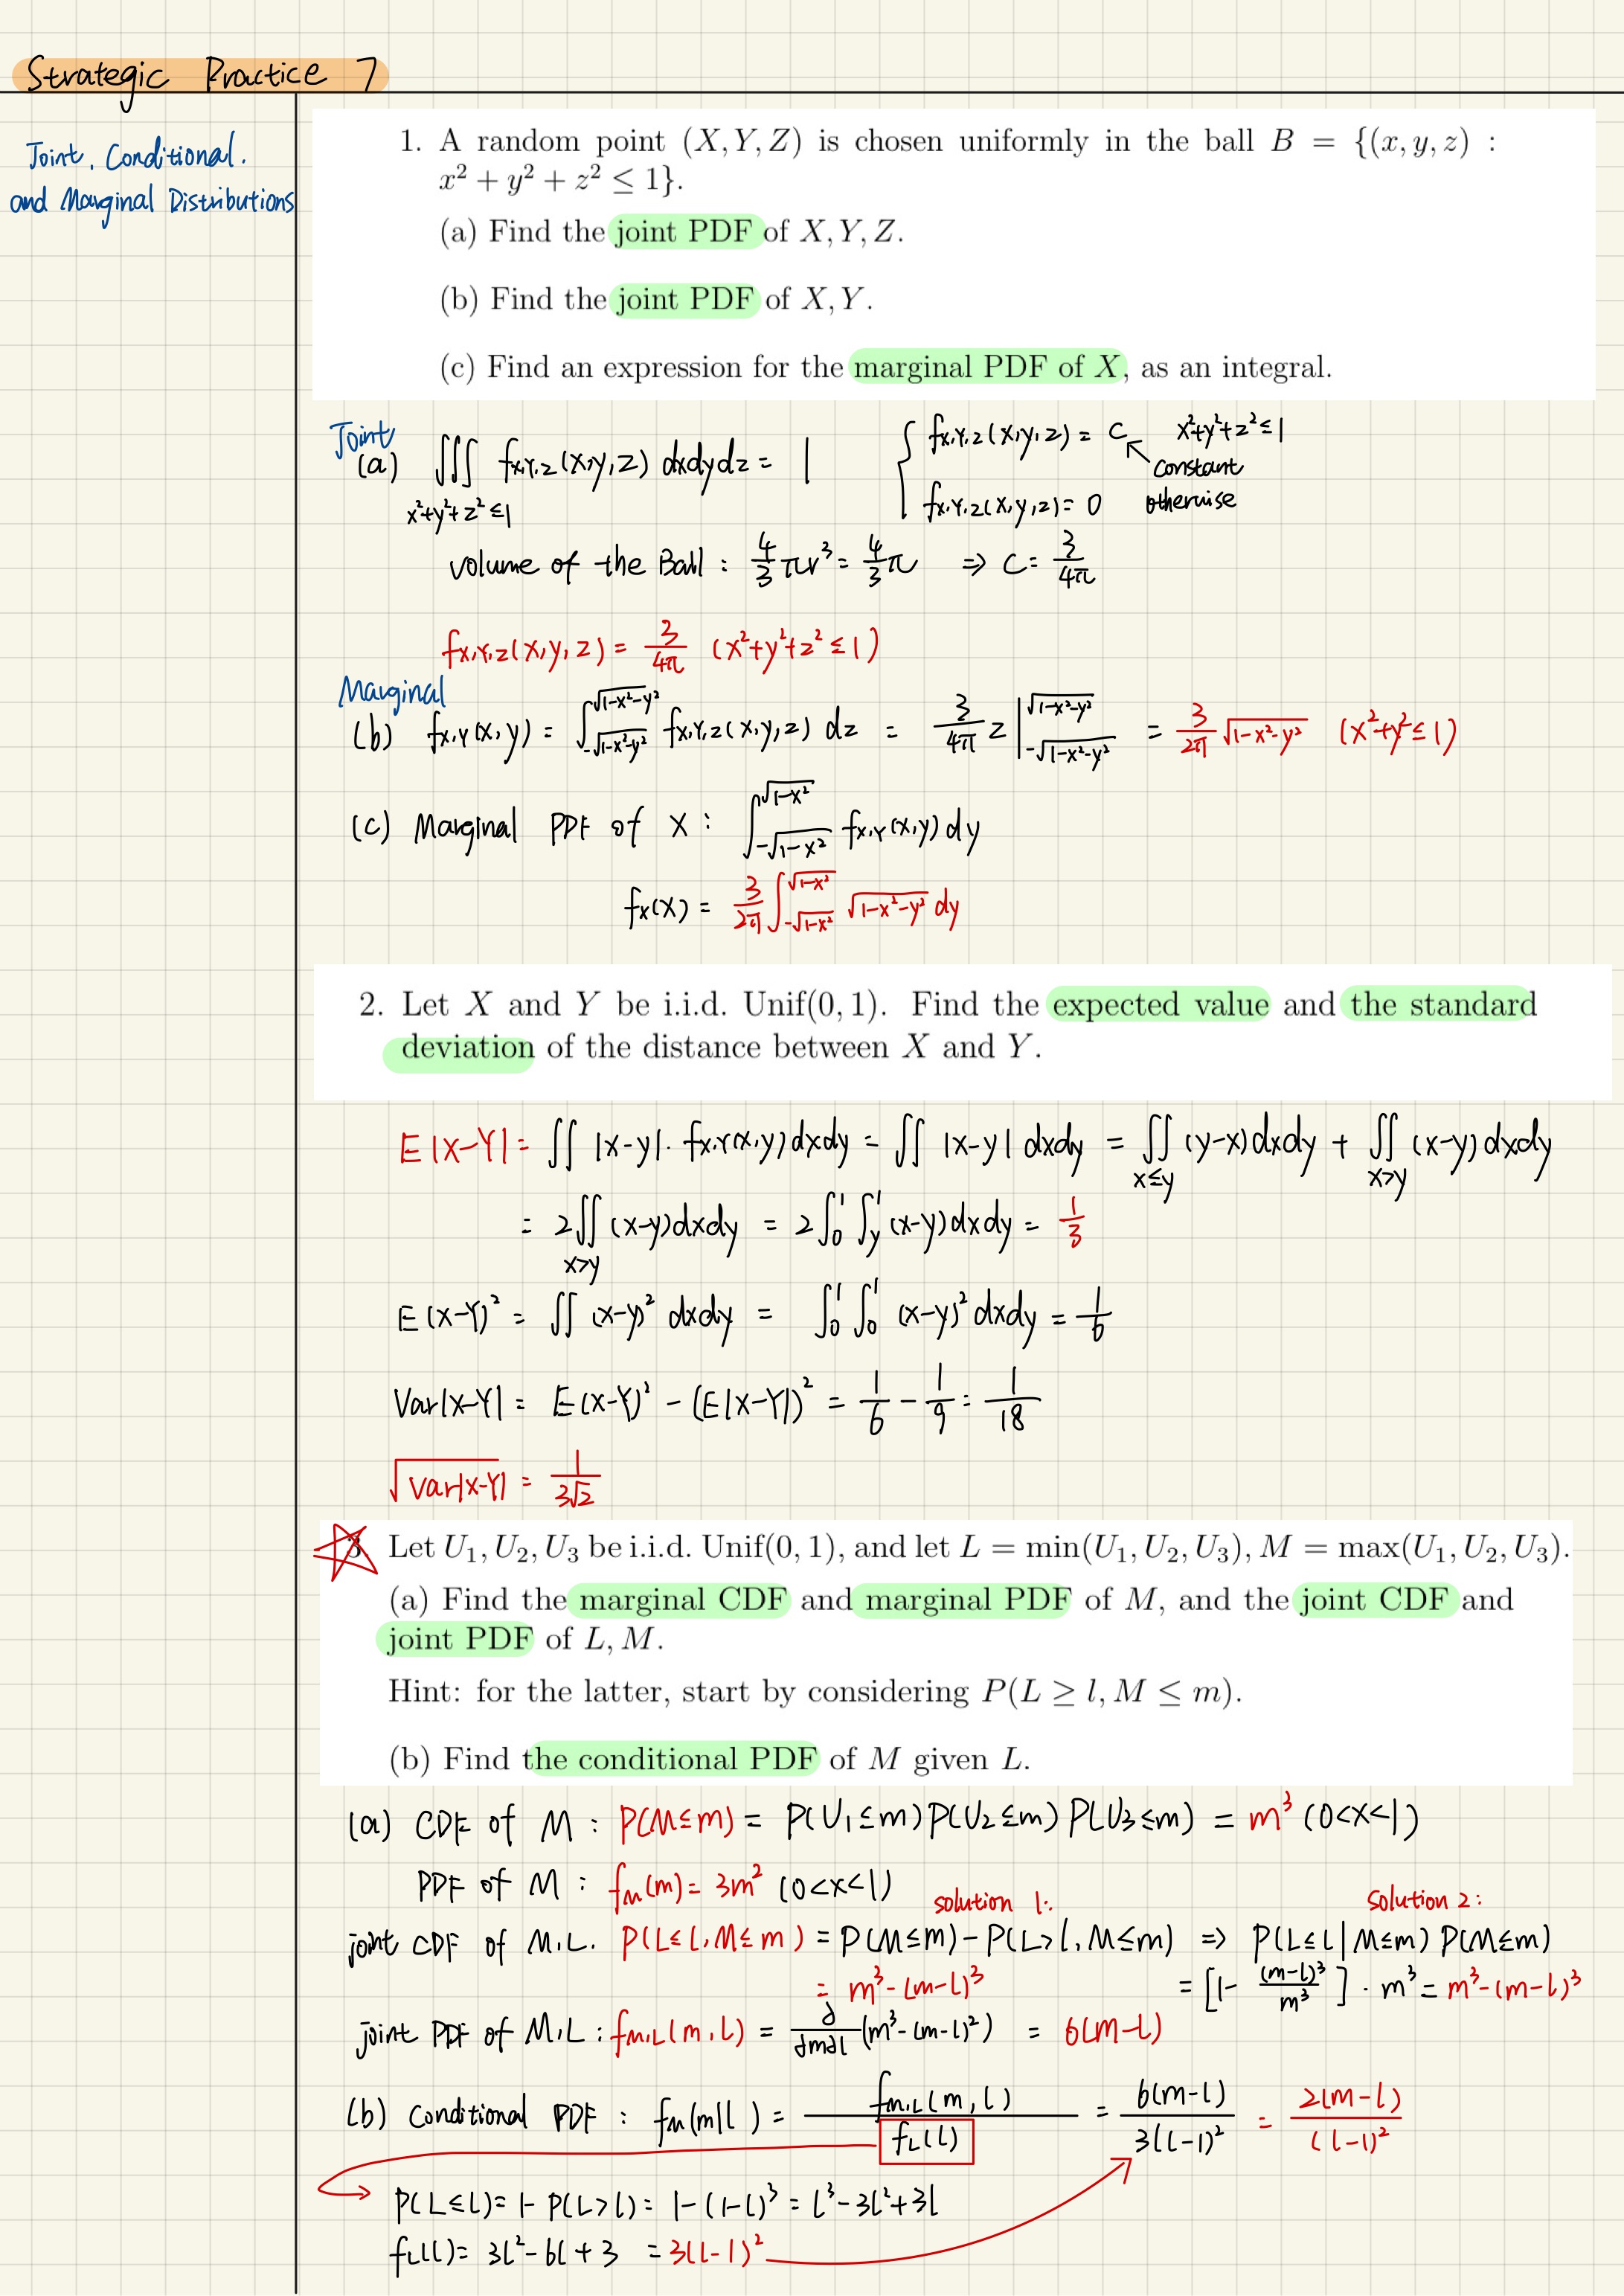 Strategic Practice 7
Joint, Conditional.
and Marginal Distributions
1. A random point (X, Y, Z) is chosen uniformly in the ball B = {(x, y, z) :
x² + y² + z² ≤ 1}.
(a) Find the joint PDF of X, Y, Z.
(b) Find the joint PDF of X, Y.
(c) Find an expression for the marginal PDF of X, as an integral.
Joint
(a) ∭_{x²+y²+z²≤1} f_{X,Y,Z}(x,y,z) dxdydz = 1 { f_{X,Y,Z}(x,y,z) = C x²+y²+z²≤1
constant
f_{X,Y,Z}(x,y,z) = 0 otherwise
volume of the Ball : 4/3 πr³ = 4/3 π ⇒ C = 3/4π
f_{X,Y,Z}(x,y,z) = 3/4π (x²+y²+z²≤1)
Marginal
(b) f_{X,Y}(x,y) = ∫_{-√(1-x²-y²)}^{√(1-x²-y²)} f_{X,Y,Z}(x,y,z) dz = 3/4π z |_{-√(1-x²-y²)}^{√(1-x²-y²)} = 3/2π √(1-x²-y²) (x²+y²≤1)
(c) Marginal PDF of X : ∫_{-√(1-x²)}^{√(1-x²)} f_{X,Y}(x,y) dy
f_X(x) = 3/2π ∫_{-√(1-x²)}^{√(1-x²)} √(1-x²-y²) dy
2. Let X and Y be i.i.d. Unif(0, 1). Find the expected value and the standard
deviation of the distance between X and Y.
E|X-Y| = ∬ |x-y|· f_{X,Y}(x,y) dxdy = ∬ |x-y| dxdy = ∬_{x≤y} (y-x) dxdy + ∬_{x>y} (x-y) dxdy
= 2∬_{x>y} (x-y) dxdy = 2∫₀¹ ∫_y¹ (x-y) dxdy = 1/3
E(X-Y)² = ∬ (x-y)² dxdy = ∫₀¹ ∫₀¹ (x-y)² dxdy = 1/6
Var|X-Y| = E(X-Y)² - (E|X-Y|)² = 1/6 - 1/9 = 1/18
√(Var|X-Y|) = 1/(3√2)
3 Let U₁, U₂, U₃ be i.i.d. Unif(0, 1), and let L = min(U₁, U₂, U₃), M = max(U₁, U₂, U₃).
(a) Find the marginal CDF and marginal PDF of M, and the joint CDF and
joint PDF of L, M.
Hint: for the latter, start by considering P(L ≥ l, M ≤ m).
(b) Find the conditional PDF of M given L.
(a) CDF of M : P(M≤m) = P(U₁≤m)P(U₂≤m)P(U₃≤m) = m³ (0<x<1)
PDF of M : f_M(m) = 3m² (0<x<1)
solution 1: solution 2:
joint CDF of M,L. P(L≤l, M≤m) = P(M≤m) - P(L>l, M≤m) ⇒ P(L≤l|M≤m) P(M≤m)
= m³-(m-l)³ = [1- (m-l)³/m³] · m³ = m³-(m-l)³
joint PDF of M,L : f_{M,L}(m,l) = ∂/∂m∂l (m³-(m-l)²) = 6(m-l)
(b) Conditional PDF : f_M(m|l) = f_{M,L}(m,l)/f_L(l) = 6(m-l)/3(l-1)² = 2(m-l)/(l-1)²
P(L≤l) = 1- P(L>l) = 1-(1-l)³ = l³-3l²+3l
f_L(l) = 3l²-6l+3 = 3(l-1)²